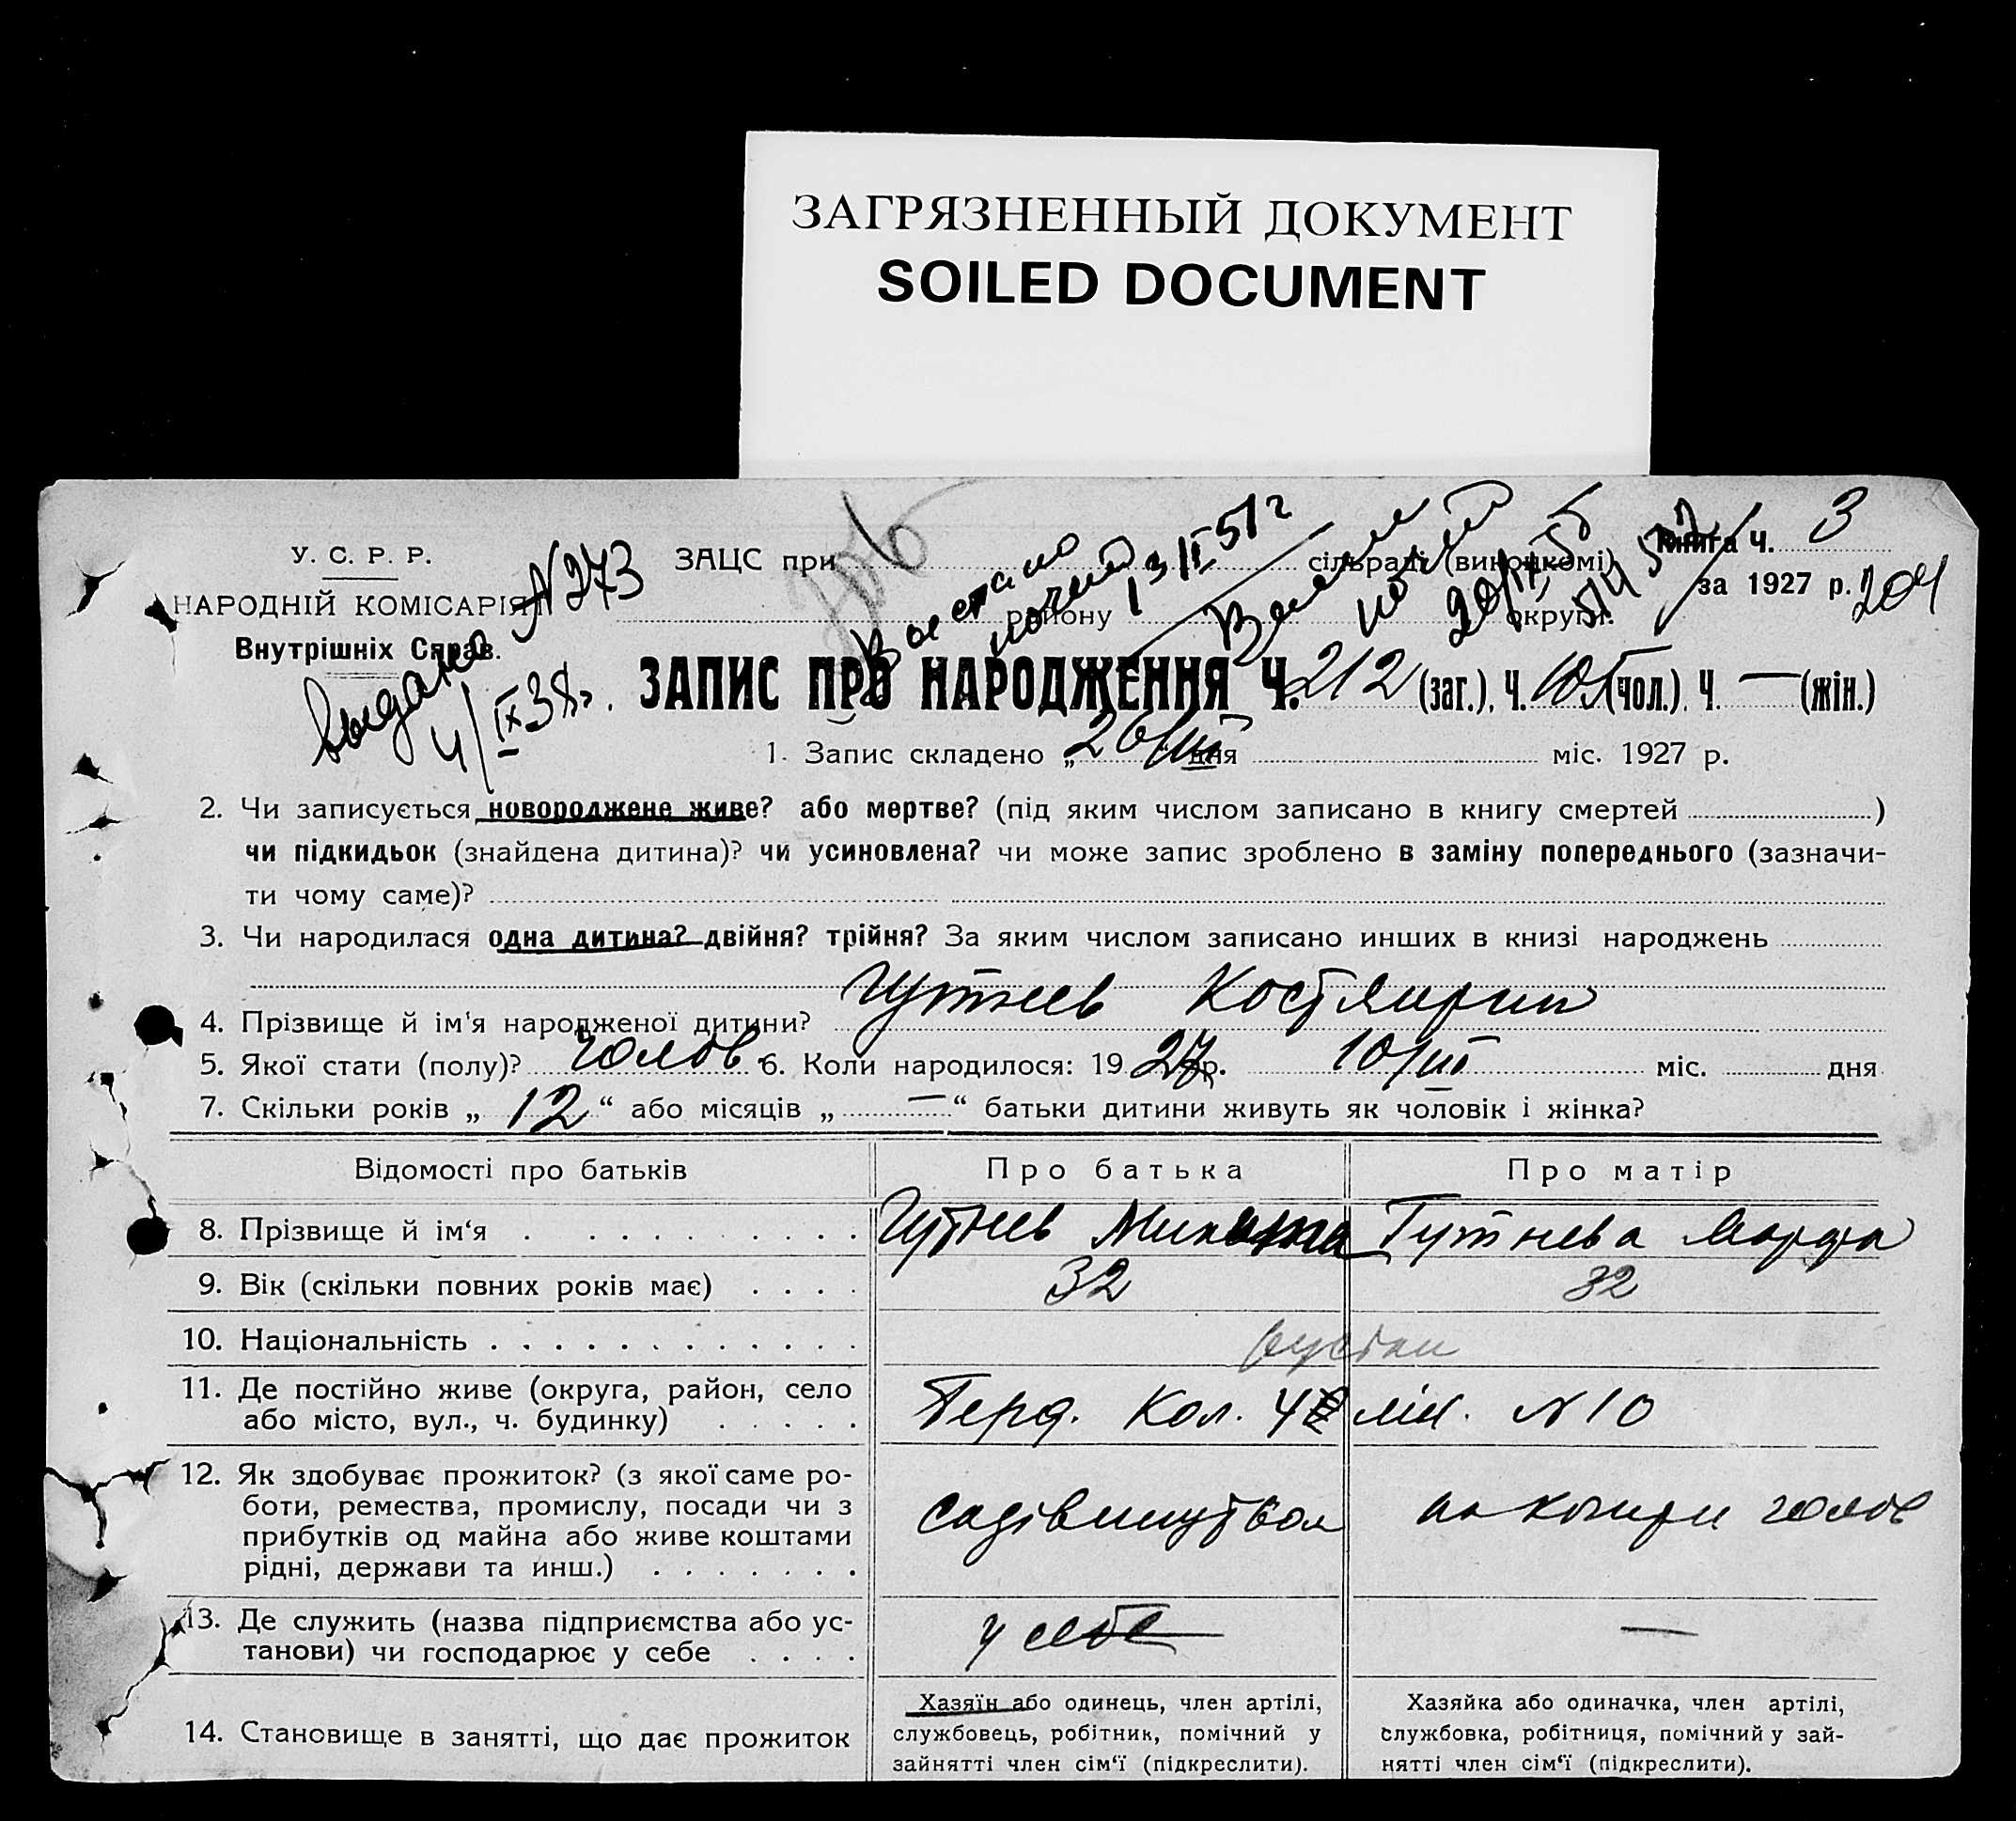 ЗАГРЯЗНЕННЫЙ ДОКУМЕНТ
SOILED DOCUMENT
У. С. Р. Р.
НАРОДНІЙ КОМІСАРІЯТ
Внутрішніх Справ.
выдано N 273
4/IX 38 г.
ЗАЦС при сільраді (виконкомі)
району округи.
13/II 51 г
Книга ч. 3
за 1927 р. 204
ЗАПИС ПРО НАРОДЖЕННЯ Ч. 212 (заг.), Ч. 105 (чол.). Ч. — (жін.)
1. Запис складено „ 26/III дня міс. 1927 р.
2. Чи записується новороджене живе? або мертве? (під яким числом записано в книгу смертей )
чи підкидьок (знайдена дитина)? чи усиновлена? чи може запис зроблено в заміну попереднього (зазначи-
ти чому саме)?
3. Чи народилася одна дитина? двійня? трійня? За яким числом записано инших в книзі народжень
4. Прізвище й ім'я народженої дитини? Гутнев
5. Якої стати (полу)? чолов. 6. Коли народилося: 1927 р. 10/III міс. дня
7. Скільки років „ 12 “ або місяців „ — “ батьки дитини живуть як чоловік і жінка?
Відомості про батьків Про батька Про матір
8. Прізвище й ім‘я Гутнев Микита Гутнева Марфа
9. Вік (скільки повних років має) 32 32
10. Національність
11. Де постійно живе (округа, район, село
або місто, вул., ч. будинку) Кол. 4 лін. N 10
12. Як здобуває прожиток? (з якої саме ро-
боти, ремества, промислу, посади чи з
прибутків од майна або живе коштами
рідні, держави та инш.) садівництвом на кошти чолов
13. Де служить (назва підприємства або ус-
танови) чи господарює у себе у себе —
14. Становище в занятті, що дає прожиток
Хазяїн або одинець, член артілі,
службовець, робітник, помічний у
зайнятті член сім‘ї (підкреслити).
Хазяйка або одиначка, член артілі,
службовка, робітниця, помічний у зай-
нятті член сім‘ї (підкреслити).